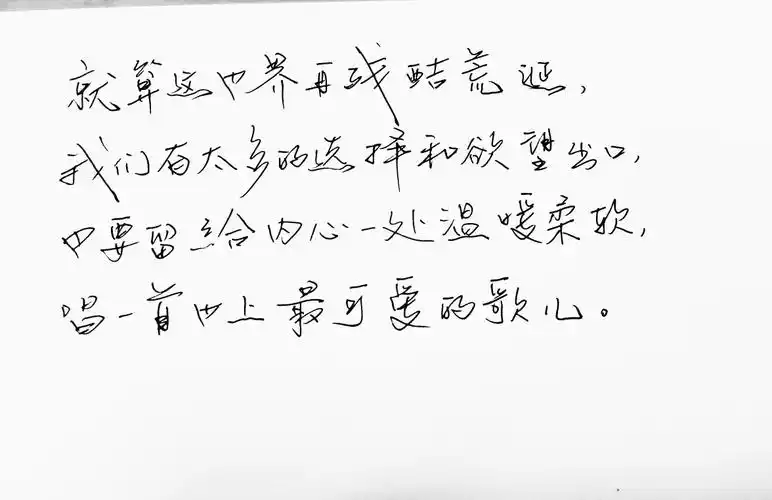 就算这世界再残酷荒诞，
我们有太多的选择和欲望出口，
也要留给内心一处温暖柔软，
唱一首世上最可爱的歌儿。